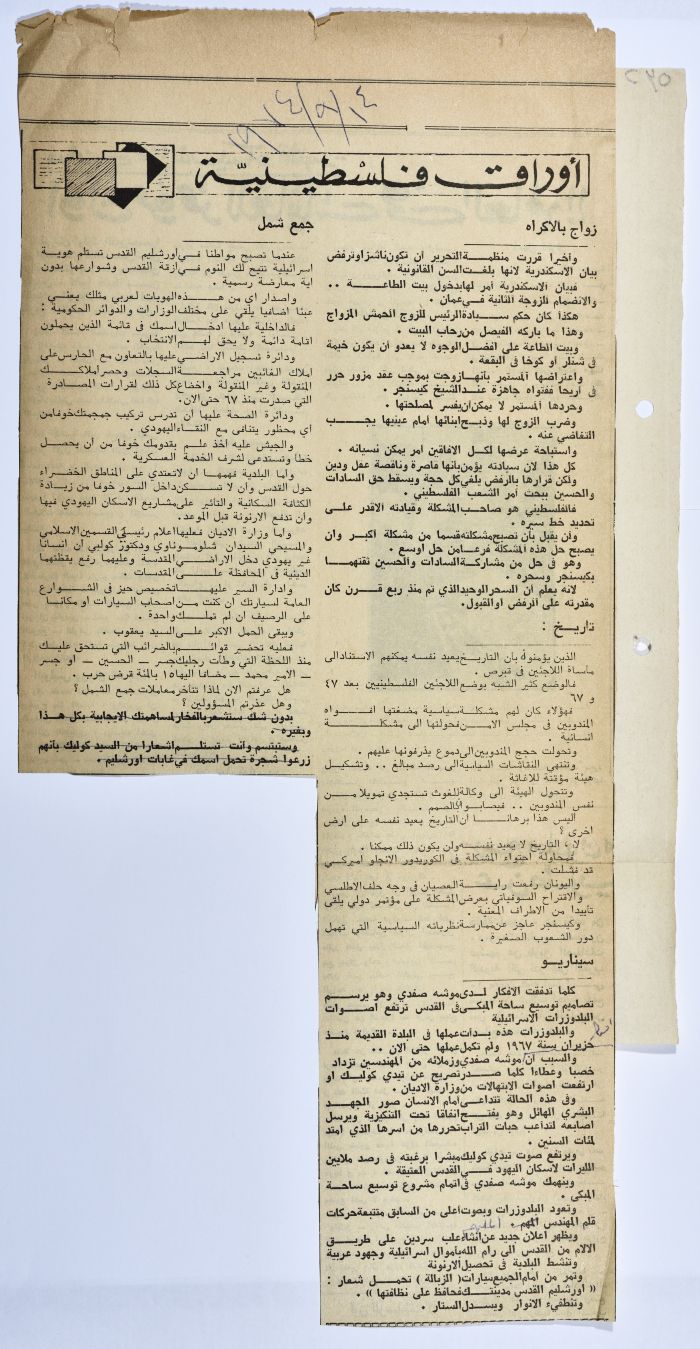 ١٩٧٤/٩/١٤
٢٣٥
أوراق فلسطينيّة
زواج بالاكراه
وأخيرا قررت منظمة التحرير أن تكون ناشزا وترفض
بيان الاسكندرية لانها بلغت السن القانونية .
فبيان الاسكندرية أمر لها بدخول بيت الطاعة ..
والانضمام للزوجة الثانية في عمان .
هكذا كان حكم سيادة الرئيس للزوج الحمش المزواج
وهذا ما باركه الفيصل من رحاب البيت .
وبيت الطاعة على أفضل الوجوه لا يعدو أن يكون خيمة
في شنلر أو كوخا في البقعة .
واعتراضها المستمر بأنها زوجت بموجب عقد مزور حرر
في أريحا ففتواه جاهزة عند الشيخ كيسنجر .
وحردها المستمر لا يمكن أن يفسر لمصلحتها .
وضرب الزوج لها وذبح أبنائها أمام عينيها يجب
التغاضي عنه .
واستباحة عرضها لكل الافاقين أمر يمكن نسيانه .
كل هذا لان سيادته يؤمن بأنها قاصرة وناقصة عقل ودين
ولكن قرارها بالرفض يلغي كل حجة ويسقط حق السادات
والحسين ببحث أمر الشعب الفلسطيني .
فالفلسطيني هو صاحب المشكلة وقيادته الاقدر على
تحديد خط سيره .
ولن يقبل بأن تصبح مشكلته قسما من مشكلة أكبر وان
يصبح حل هذه المشكلة فرعا من حل أوسع .
وهو في حل من مشاركة السادات والحسين ثقتهما
بكيسنجر وسحره .
لانه يعلم أن السحر الوحيد الذي تم منذ ربع قرن كان
مقدرته على الرفض أو القبول .
تاريخ :
الذين يؤمنون بأن التاريخ يعيد نفسه يمكنهم الاستناد الى
مأساة اللاجئين في قبرص .
فالوضع كثير الشبه بوضع اللاجئين الفلسطينيين بعد ٤٧
و ٦٧
فهؤلاء كان لهم مشكلة سياسية مضغتها افواه
المندوبين في مجلس الامن فحولتها الى مشكلة
انسانية .
وتحولت حجج المندوبين الى دموع يذرفونها عليهم .
وتنتهي النقاشات السياسية الى رصد مبالغ .. وتشكيل
هيئة مؤقتة للاغاثة .
وتتحول الهيئة الى وكالة للغوث تستجدي تمويلا من
نفس المندوبين .. فيصابوا بالصمم .
اليس هذا برهانا ان التاريخ يعيد نفسه على ارض
اخرى ؟
لا ، التاريخ لا يعيد نفسه ولن يكون ذلك ممكنا .
فمحاولة احتواء المشكلة في الكوريدور الانجلو اميركي
قد فشلت .
واليونان رفعت راية العصيان في وجه حلف الاطلسي
والاقتراح السوفياتي بعرض المشكلة على مؤتمر دولي يلقى
تأييدا من الاطراف المعنية .
وكيسنجر عاجز عن ممارسة نظرياته السياسية التي تهمل
دور الشعوب الصغيرة .
سيناريو
كلما تدفقت الافكار لدى موشه صفدي وهو يرسم
تصاميم توسيع ساحة المبكى في القدس ترتفع اصوات
البلدوزرات الاسرائيلية
والبلدوزرات هذه بدأت عملها في البلدة القديمة منذ
حزيران سنة ١٩٦٧ ولم تكمل عملها حتى الان ..
والسبب أن موشه صفدي وزملائه من المهندسين تزداد
خصبا وعطاءا كلما صدر تصريح عن تيدي كوليك أو
ارتفعت اصوات الابتهالات من وزارة الاديان .
وفي هذه الحالة تتداعى أمام الانسان صور الجهد
البشري الهائل وهو يفتح انفاقا تحت التنكيزية ويرسل
اصابعه لتداعب حبات التراب تحررها من أسرها الذي امتد
لمئات السنين .
ويرتفع صوت تيدي كوليك مبشرا برغبته في رصد ملايين
الليرات لاسكان اليهود في القدس العتيقة .
وينهمك موشه صفدي في اتمام مشروع توسيع ساحة
المبكى .
وتعود البلدوزرات وبصوت اعلى من السابق متتبعة حركات
قلم المهندس المهم .
ويظهر اعلان جديد عن انشاء علب سردين على طريق
الالام من القدس الى رام الله بأموال اسرائيلية وجهود عربية
وتنشط البلدية في تحصيل الارنونة
وتمر من أمام الجميع سيارات ( الزبالة ) تحمل شعار :
« اورشليم القدس مدينتك فحافظ على نظافتها » .
وتنطفيء الانوار ويسدل الستار .
جمع شمل
عندما تصبح مواطنا في أورشليم القدس تستلم هوية
اسرائيلية تتيح لك النوم في ازقة القدس وشوارعها بدون
اية معارضة رسمية .
واصدار اي من هذه الهويات لعربي مثلك يعني
عبئا اضافيا يلقى على مختلف الوزارات والدوائر الحكومية :
فالداخلية عليها ادخال اسمك في قائمة الذين يحملون
اقامة دائمة ولا يحق لهم الانتخاب .
ودائرة تسجيل الاراضي عليها بالتعاون مع الحارس على
أملاك الغائبين مراجعة السجلات وحصر املاكك
المنقولة وغير المنقولة واخضاع كل ذلك لقرارات المصادرة
التي صدرت منذ ٦٧ حتى الان .
ودائرة الصحة عليها أن تدرس تركيب جمجمتك خوفا من
أي محظور يتنافى مع النقاء اليهودي .
والجيش عليه أخذ علم بقدومك خوفا من أن يحصل
خطأ وتستدعى لشرف الخدمة العسكرية .
وأما البلدية فهمها ان لا تعتدي على المناطق الخضراء
حول القدس وأن لا تسكن داخل السور خوفا من زيادة
الكثافة السكانية والتأثير على مشاريع الاسكان اليهودي فيها
وأن تدفع الارنونة قبل الموعد .
وأما وزارة الاديان فعليها اعلام رئيسي القسمين الاسلامي
والمسيحي السيدان شلومو ناوي ودكتور كولبي أن انسانا
غير يهودي دخل الاراضي المقدسة وعليهما رفع يقظتهما
الدينية في المحافظة على المقدسات .
وادارة السير عليها تخصيص حيز في الشوارع
العامة لسيارتك أن كنت من اصحاب السيارات أو مكانا
على الرصيف ان لم تملك واحدة .
ويبقى الحمل الاكبر على السيد يعقوب .
فعليه تحضير قوائم بالضرائب التي تستحق عليك
منذ اللحظة التي وطأت رجليك جسر — الحسين — أو جسر
— الامير محمد — مضافا اليها ١٥ بالمئة قرض حرب .
هل عرفتم الان لماذا تتأخر معاملات جمع الشمل ؟
وهل عذرتم المسؤولين ؟
بدون شك ستشعر بالفخار لمساهمتك الايجابية بكل هذا
وبغيره .
وستبتسم وأنت تستلم اشعارا من السيد كوليك بأنهم
زرعوا شجرة تحمل اسمك في غابات اورشليم .